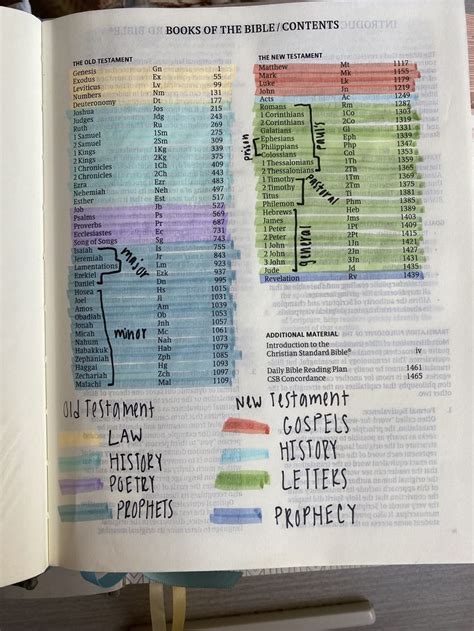 BOOKS OF THE BIBLE/CONTENTS
THE OLD TESTAMENT
Genesis Gn 1
Exodus Ex 55
Leviticus Lv 99
Numbers Nm 131
Deuteronomy Dt 177
Joshua Jos 215
Judges Jdg 243
Ruth Ru 269
1 Samuel 1Sm 275
2 Samuel 2Sm 309
1 Kings 1Kg 339
2 Kings 2Kg 375
1 Chronicles 1Ch 409
2 Chronicles 2Ch 443
Ezra Ezr 483
Nehemiah Neh 497
Esther Est 517
Job Jb
Psalms Ps 569
Proverbs Pr 687
Ecclesiastes Ec 731
Song of Songs Sg 743
Isaiah Is 755
Jeremiah Jr 843
Lamentations Lm 923
Ezekiel Ezk 937
Daniel Dn 995
major
Hosea Hs 1015
Joel Jl 1031
Amos Am 1039
Obadiah Ob 1053
Jonah Jnh 1057
Micah Mc 1061
Nahum Nah 1073
Habakkuk Hab 1079
Zephaniah Zph 1085
Haggai Hg 1093
Zechariah Zch 1097
Malachi Mal 1109
minor
THE NEW TESTAMENT
Matthew Mt 1117
Mark Mk 1155
Luke Lk 1179
John Jn 1219
Acts Ac 1249
Romans Rm 1287
1 Corinthians 1Co 1303
2 Corinthians 2Co 1319
Galatians Gl 1331
Ephesians Eph 1339
Philippians Php 1347
Colossians Col 1353
1 Thessalonians 1Th 1359
2 Thessalonians 2Th
prison
Pauls
1 Timothy 1Tm 1369
2 Timothy 2Tm 1375
Titus Ti 1381
Philemon Phm 1385
pastoral
Hebrews Heb
James Jms 1403
1 Peter 1Pt 1409
2 Peter 2Pt 1415
1 John 1Jn 1421
2 John 2Jn 1427
3 John 3Jn
Jude Jd 1435
general
Revelation Rv 1439
ADDITIONAL MATERIAL
Introduction to the
Christian Standard Bible® iv
Daily Bible Reading Plan 1461
CSB Concordance 1465
Old Testament
LAW
HISTORY
POETRY
PROPHETS
New Testament
GOSPELS
HISTORY
LETTERS
PROPHECY